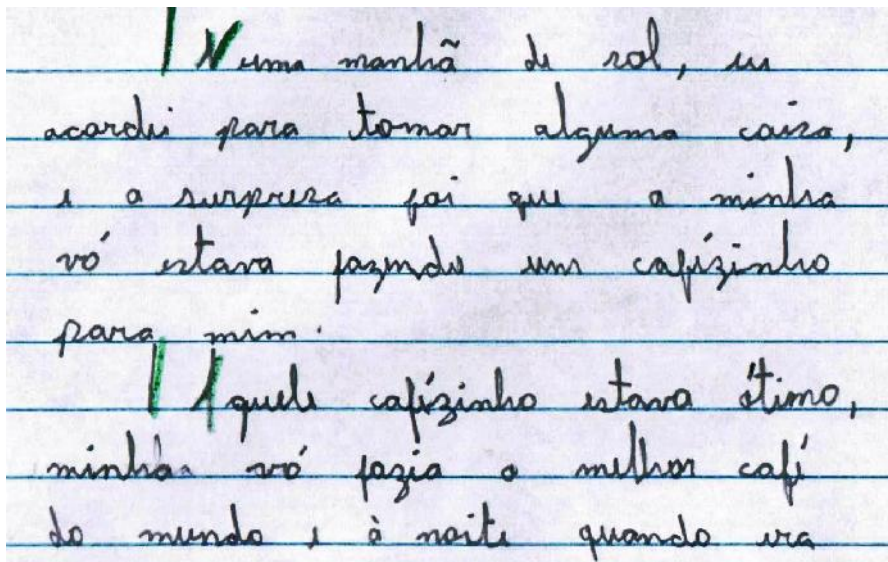 Numa manhã de sol, eu
acordei para tomar alguma coisa,
e a surpresa foi que a minha
vó estava fazendo um cafézinho
para mim.
Aquele cafézinho estava ótimo,
minha vó fazia o melhor café
do mundo e à noite quando era